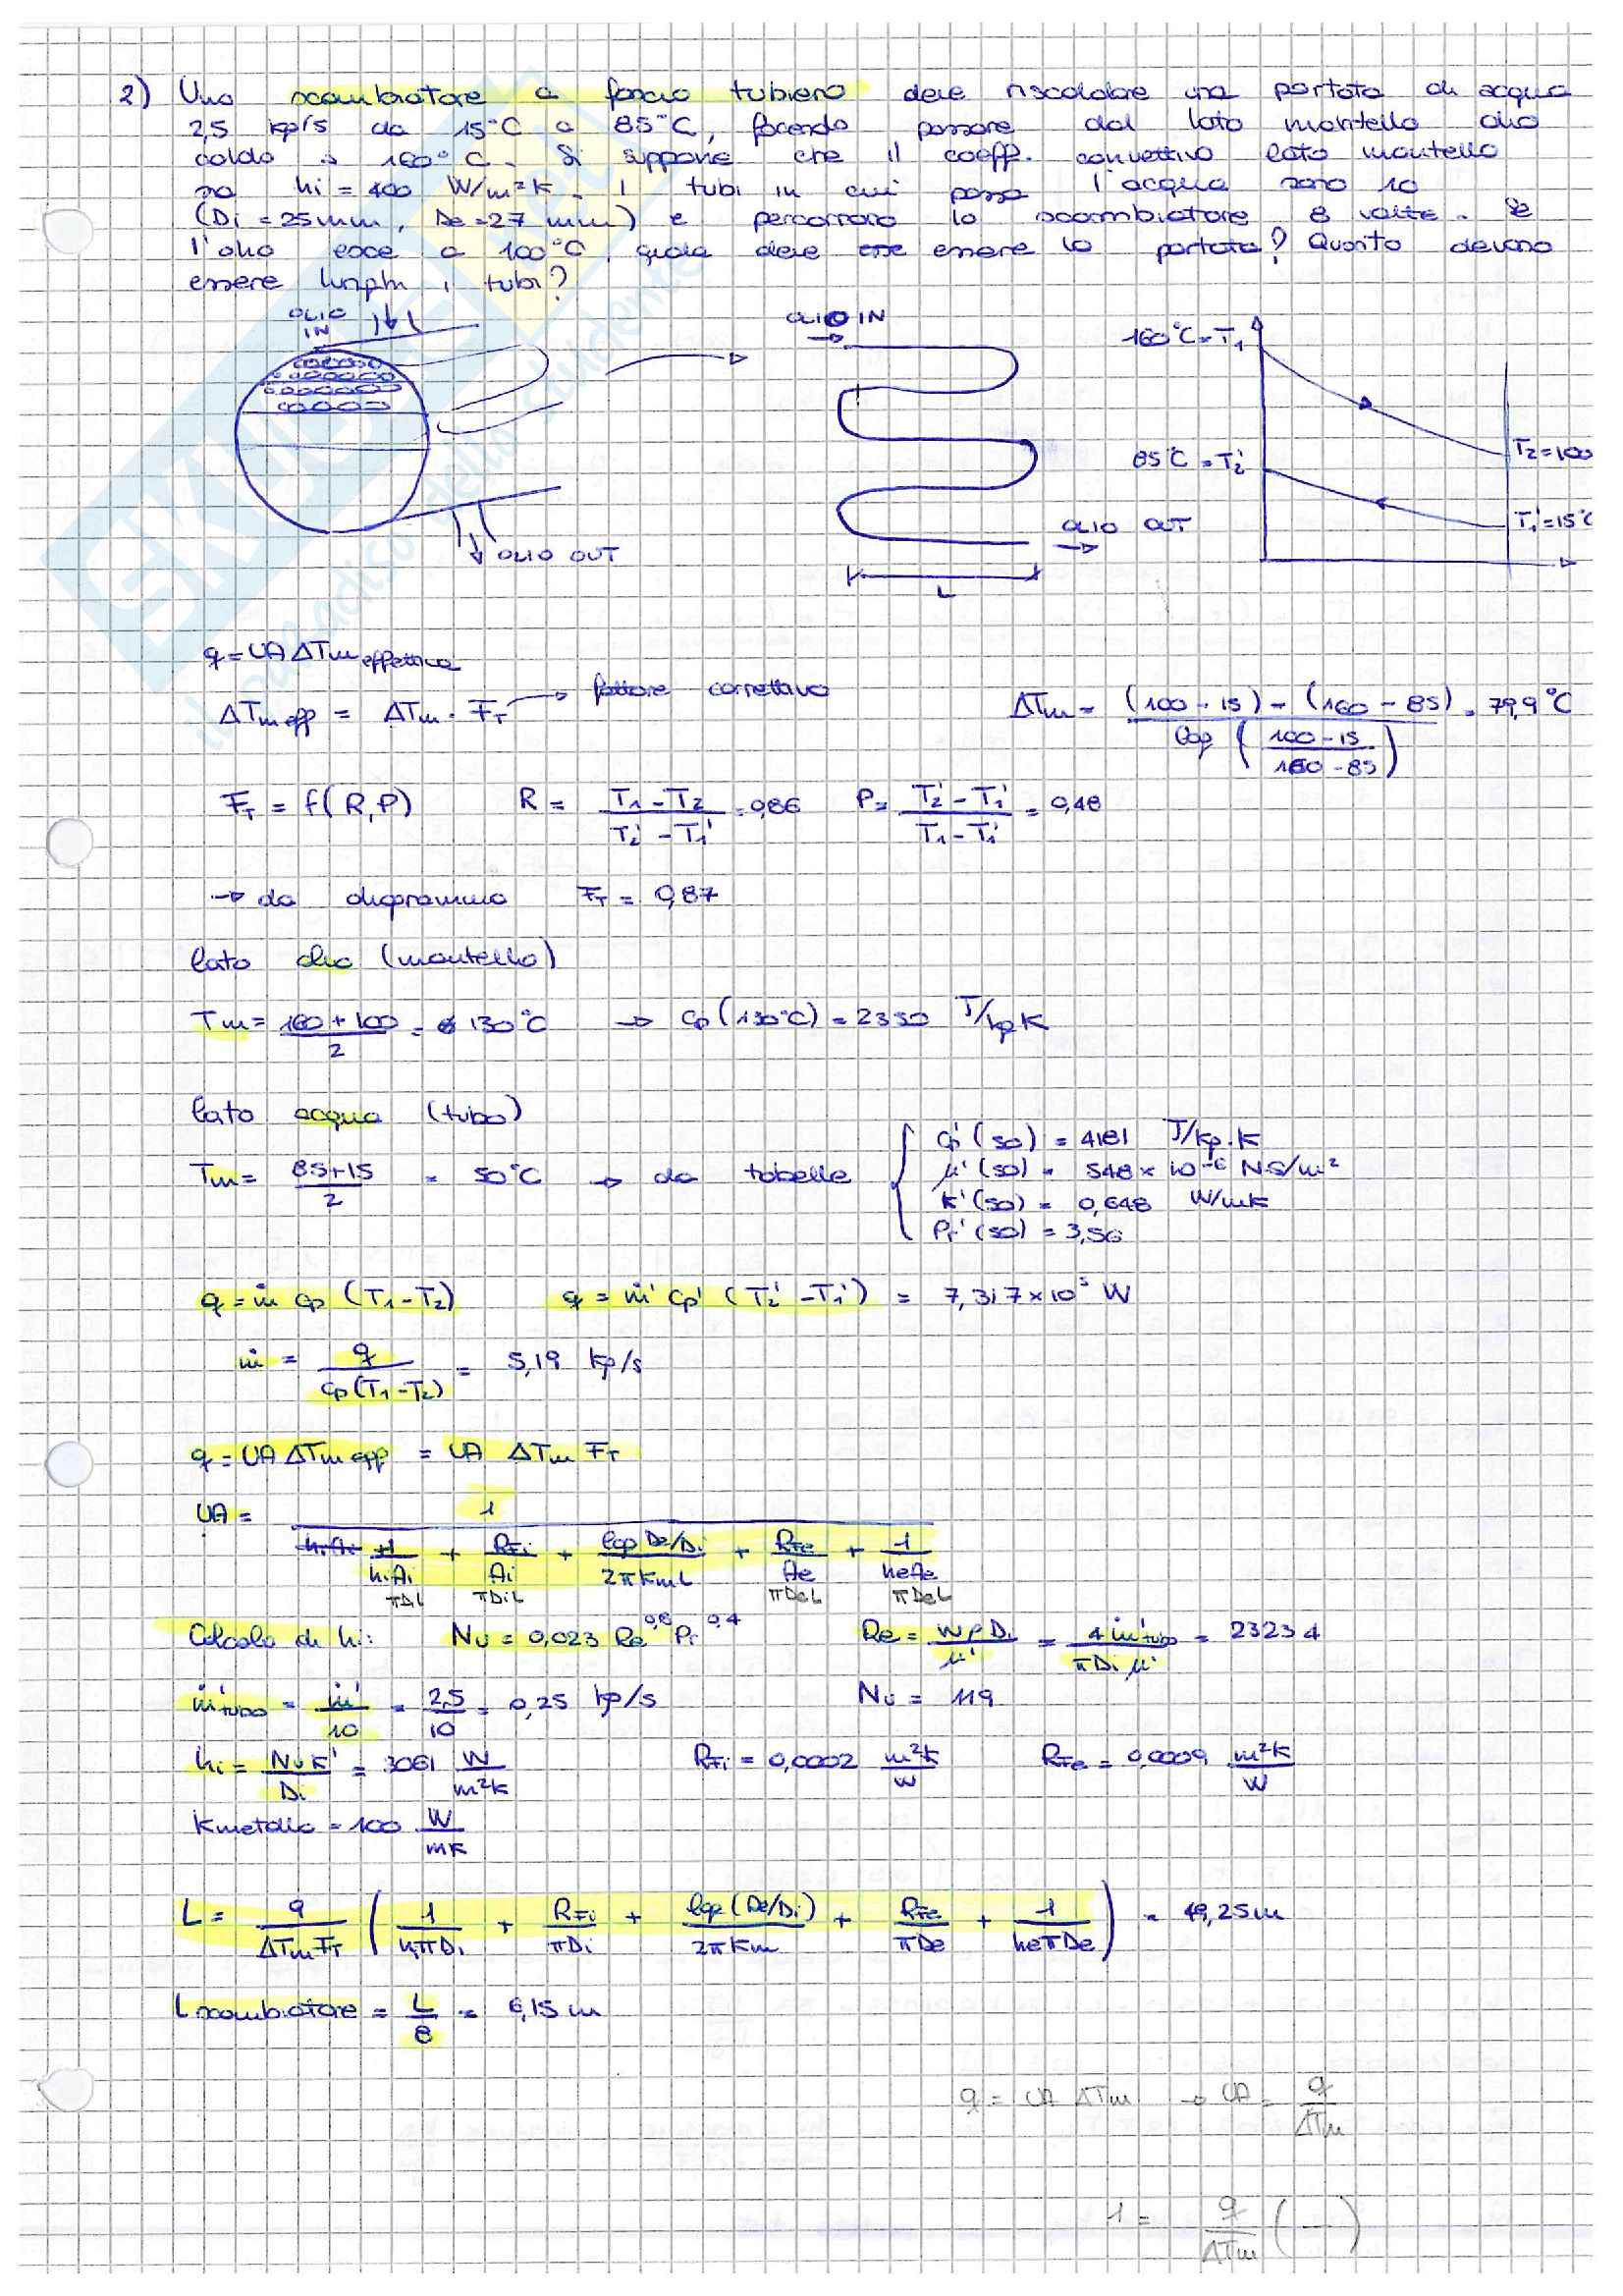 2) Uno scambiatore a fascio tubiero deve riscaldare una portata di acqua
2,5 kg/s da 15°C a 85°C, facendo passare dal lato mantello olio
caldo a 160°C. Si suppone che il coeff. convettivo lato mantello
sia hi = 400 W/m²K. I tubi in cui passa l'acqua sono 10
(Di = 25mm, De = 27 mm) e percorrono lo scambiatore 8 volte. Se
l'olio esce a 100°C, quale deve essere la portata? Quanto devono
essere lunghi i tubi?
OLIO IN
OLIO OUT
OLIO IN
OLIO OUT
L
160°C = T1
85°C = T2'
T2 = 100
T1' = 15°C
q = UA ΔTm effettiva
ΔTm eff = ΔTm · FT → fattore correttivo
ΔTm = (100 - 15) - (160 - 85) / log (100 - 15 / 160 - 85) = 79,9 °C
FT = f(R,P) R = T1 - T2 / T2' - T1' = 0,86 P = T2' - T1' / T1 - T1' = 0,48
→ da diagramma FT = 0,87
lato olio (mantello)
Tm = 160 + 100 / 2 = 130°C → cp (130°C) = 2350 J/kg K
lato acqua (tubo)
Tm = 85+15 / 2 = 50°C → da tabelle
cp' (50) = 4181 J/kg·K
μ' (50) = 548 × 10⁻⁶ N·S/m²
k' (50) = 0,648 W/mK
Pr' (50) = 3,56
q = ṁ cp (T1 - T2) q = ṁ' cp' (T2' - T1') = 7,317 × 10⁵ W
ṁ = q / cp (T1 - T2) = 5,19 kg/s
q = UA ΔTm eff = UA ΔTm FT
UA = 1 / (1 / hi Ai + RFi / Ai + log De/Di / 2π Km L + RFe / Ae + 1 / he Ae)
πDiL πDiL πDeL πDeL
Calcolo di hi: Nu = 0,023 Re^0,8 Pr^0,4 Re = wρDi / μ' = 4 ṁ'tubo / πDi μ' = 23234
ṁ'tubo = ṁ' / 10 = 2,5 / 10 = 0,25 kg/s Nu = 119
hi = Nu k' / Di = 3061 W / m²K RFi = 0,0002 m²K / W RFe = 0,0009 m²K / W
Kmetallo = 100 W / mK
L = q / ΔTm FT (1 / hi πDi + RFi / πDi + log (De/Di) / 2π Km + RFe / πDe + 1 / he πDe) = 49,25 m
L scambiatore = L / 8 = 6,15 m
q = UA ΔTm → UA = q / ΔTm
1 = q / ΔTm (—)